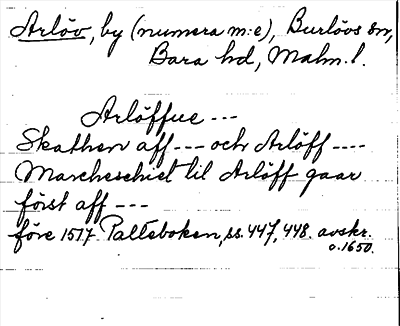 Arlöv, by (numera m:e), Burlövs sn,
Bara hd, Malm. l.
Arlöffue ---
Skathen aff --- och Arlöff ----
Marcheschiel til Arlöff gaar
först aff ---
före 1517. Palteboken, ss. 447, 448. avskr.
o. 1650.